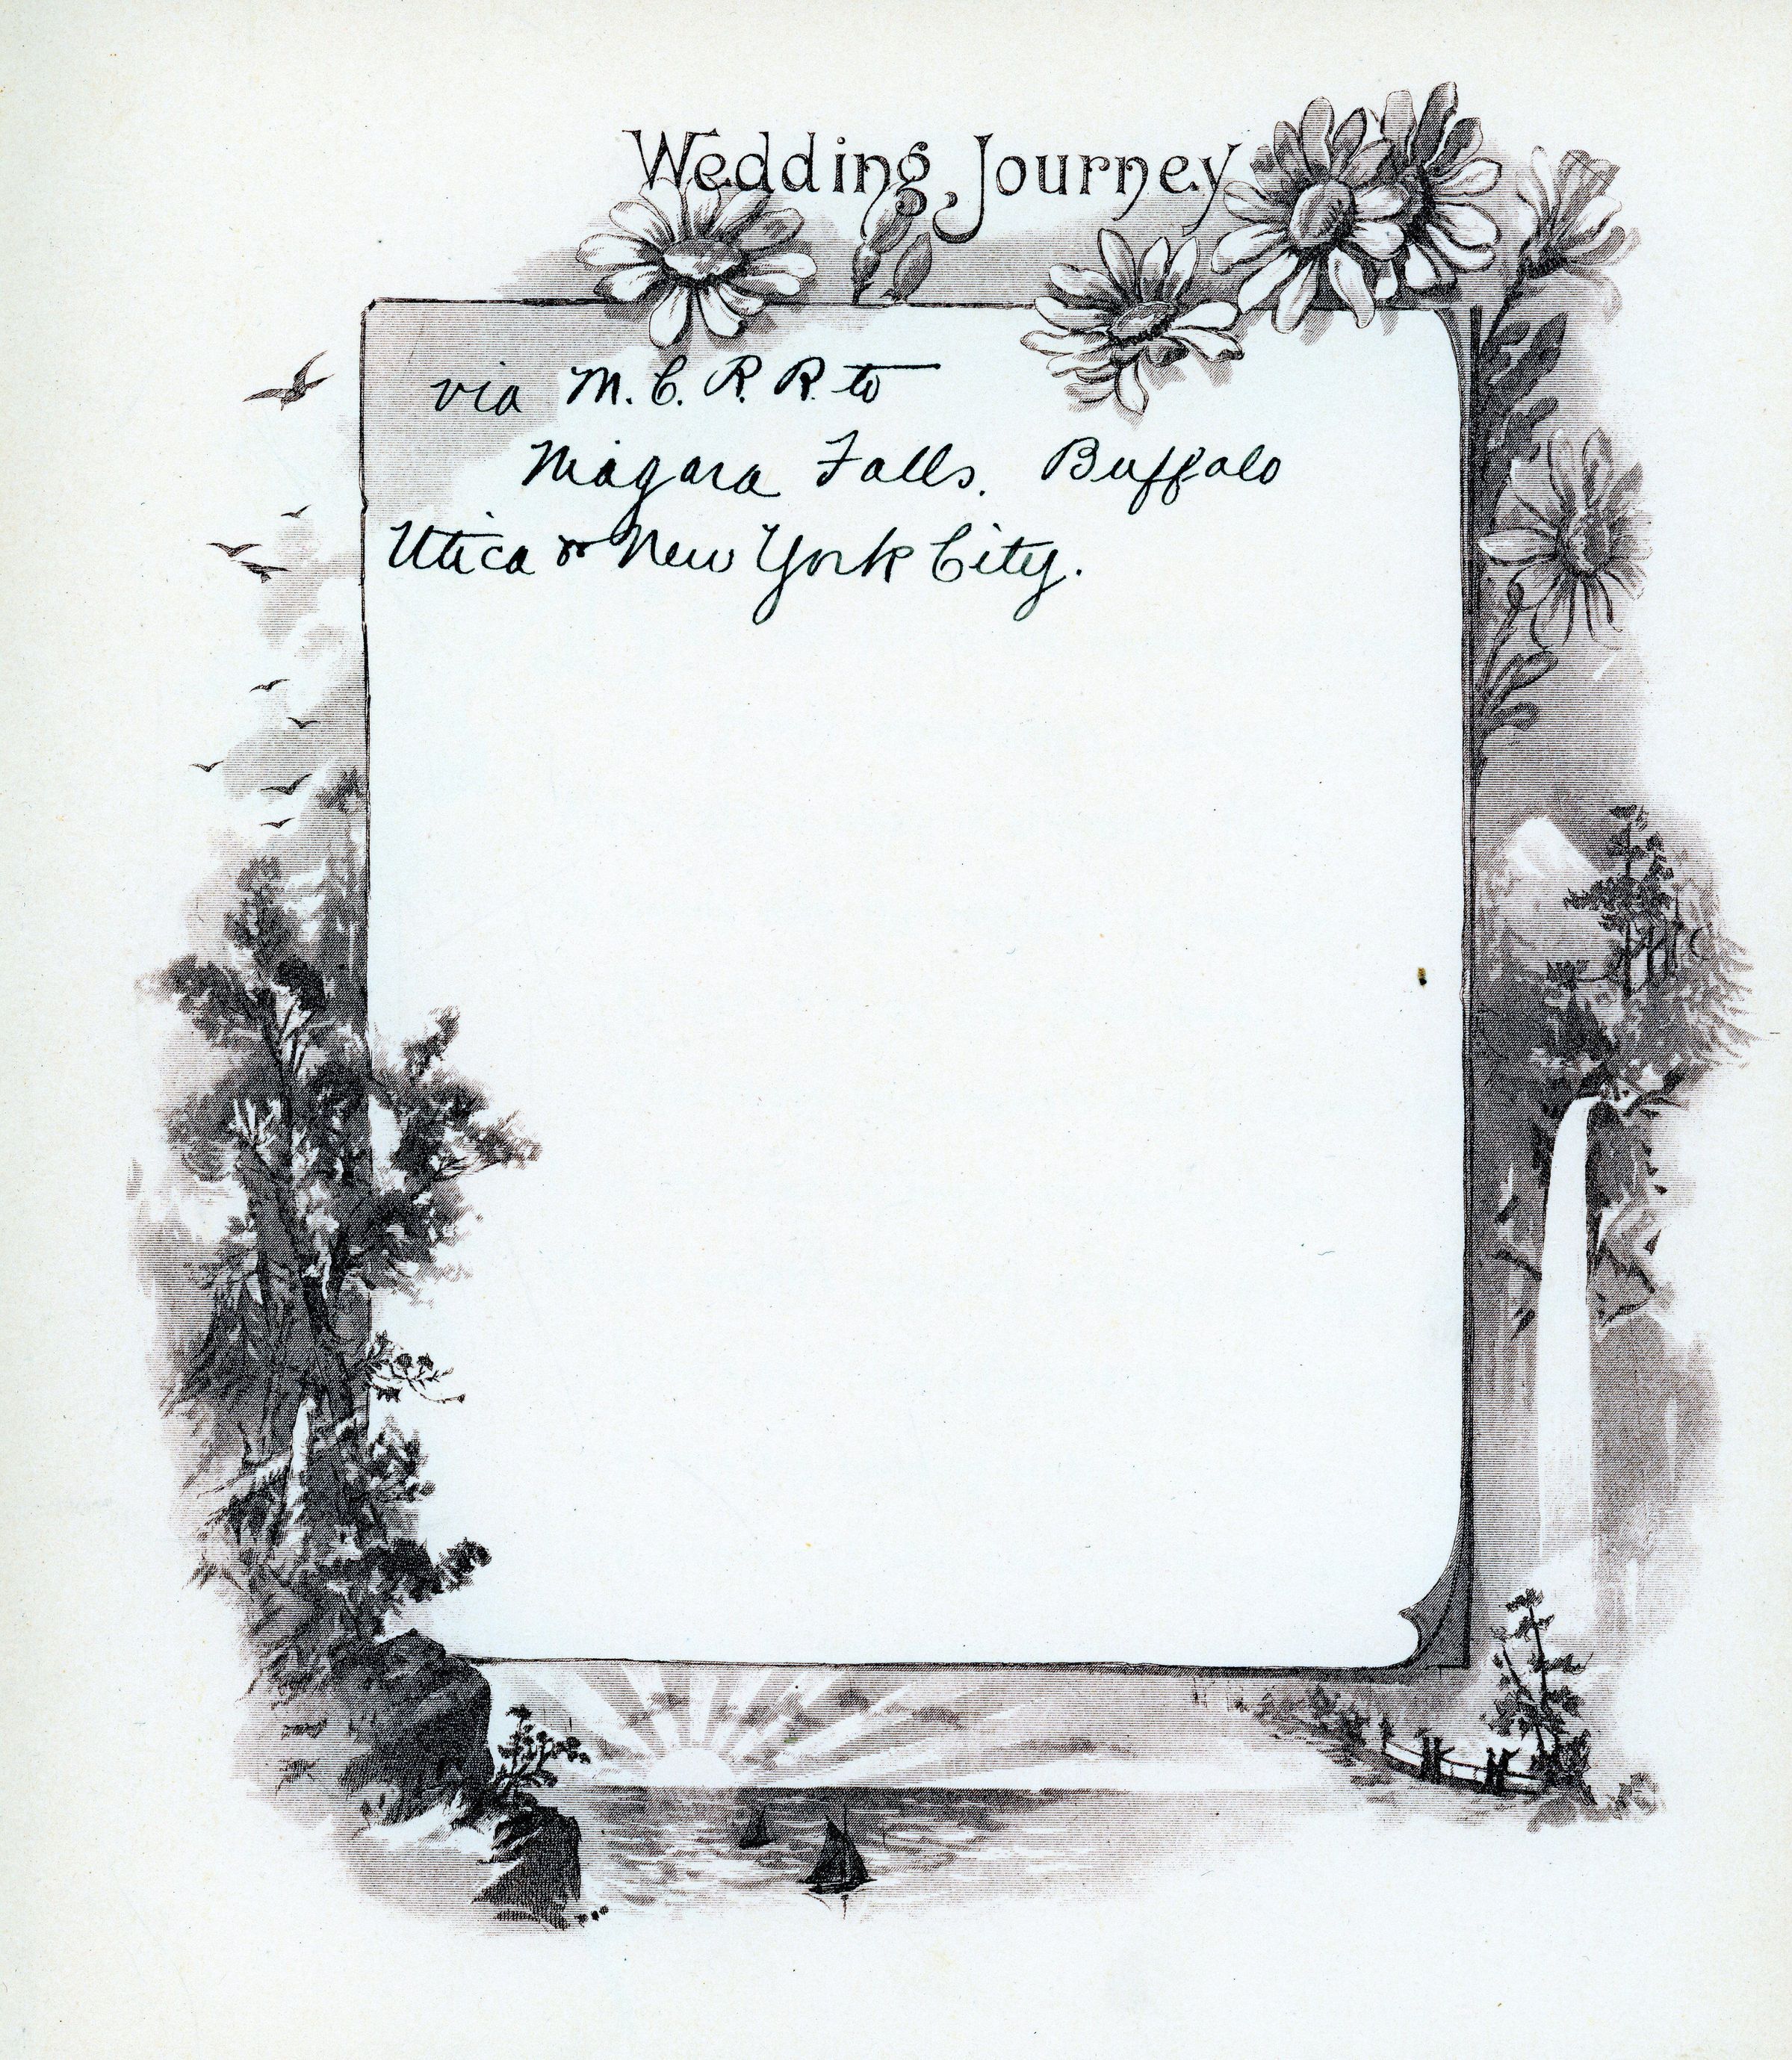 Wedding Journey
via M.C.R.R. to
Niagara Falls. Buffalo
Utica & New York City.